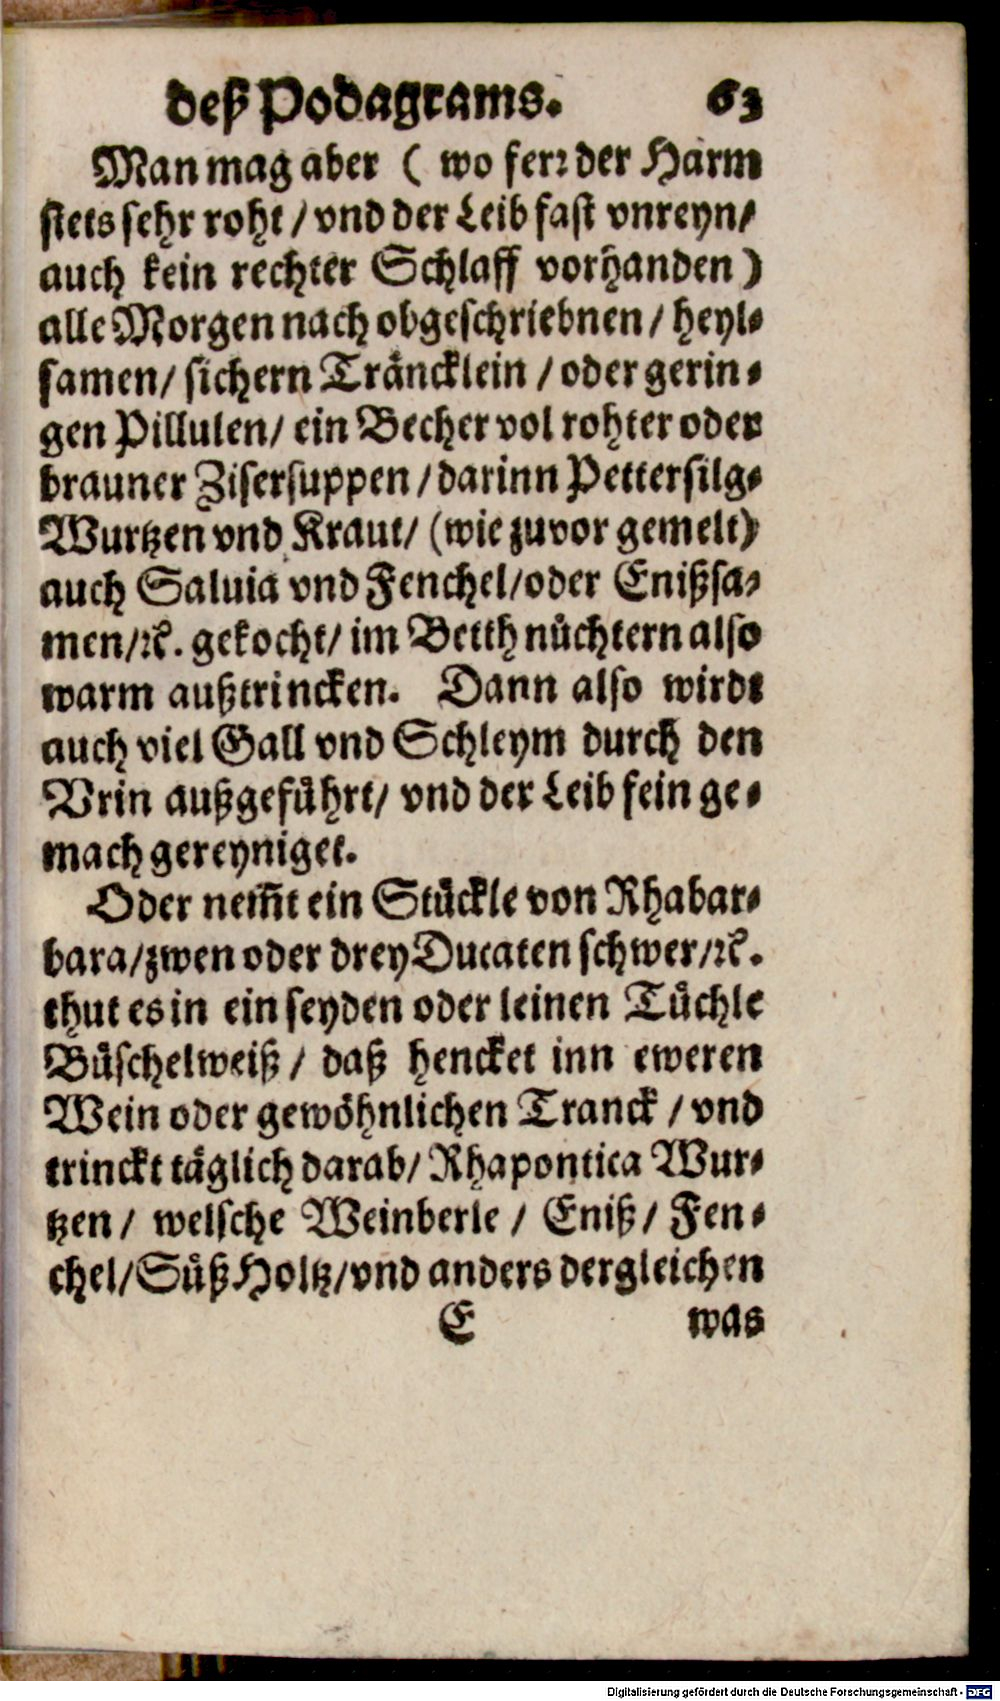 deß Podagrams. 63
Man mag aber ( wo ferꝛ der Harm
stets sehr roht / vnd der Leib fast vnreyn/
auch kein rechter Schlaff vorhanden )
alle Morgen nach obgeschriebnen / heyl-
samen / sichern Träncklein / oder gerin-
gen Pillulen / ein Becher vol rohter oder
brauner Zisersuppen / darinn Pettersilg-
Wurtzen vnd Kraut / (wie zuvor gemelt)
auch Saluia vnd Fenchel / oder Enißsa-
men / ꝛc. gekocht / im Betth nüchtern also
warm außtrincken. Dann also wirdt
auch viel Gall vnd Schleym durch den
Vrin außgeführt / vnd der Leib fein ge-
mach gereyniget.
Oder nem̃t ein Stückle von Rhabar-
bara / zwen oder drey Ducaten schwer / ꝛc.
thut es in ein seyden oder leinen Tüchle
Büschelweiß / daß hencket inn eweren
Wein oder gewöhnlichen Tranck / vnd
trinckt täglich darab / Rhapontica Wur-
tzen / welsche Weinberle / Eniß / Fen-
chel / Süß Holtz / vnd anders dergleichen
E was
Digitalisierung gefördert durch die Deutsche Forschungsgemeinschaft - DFG